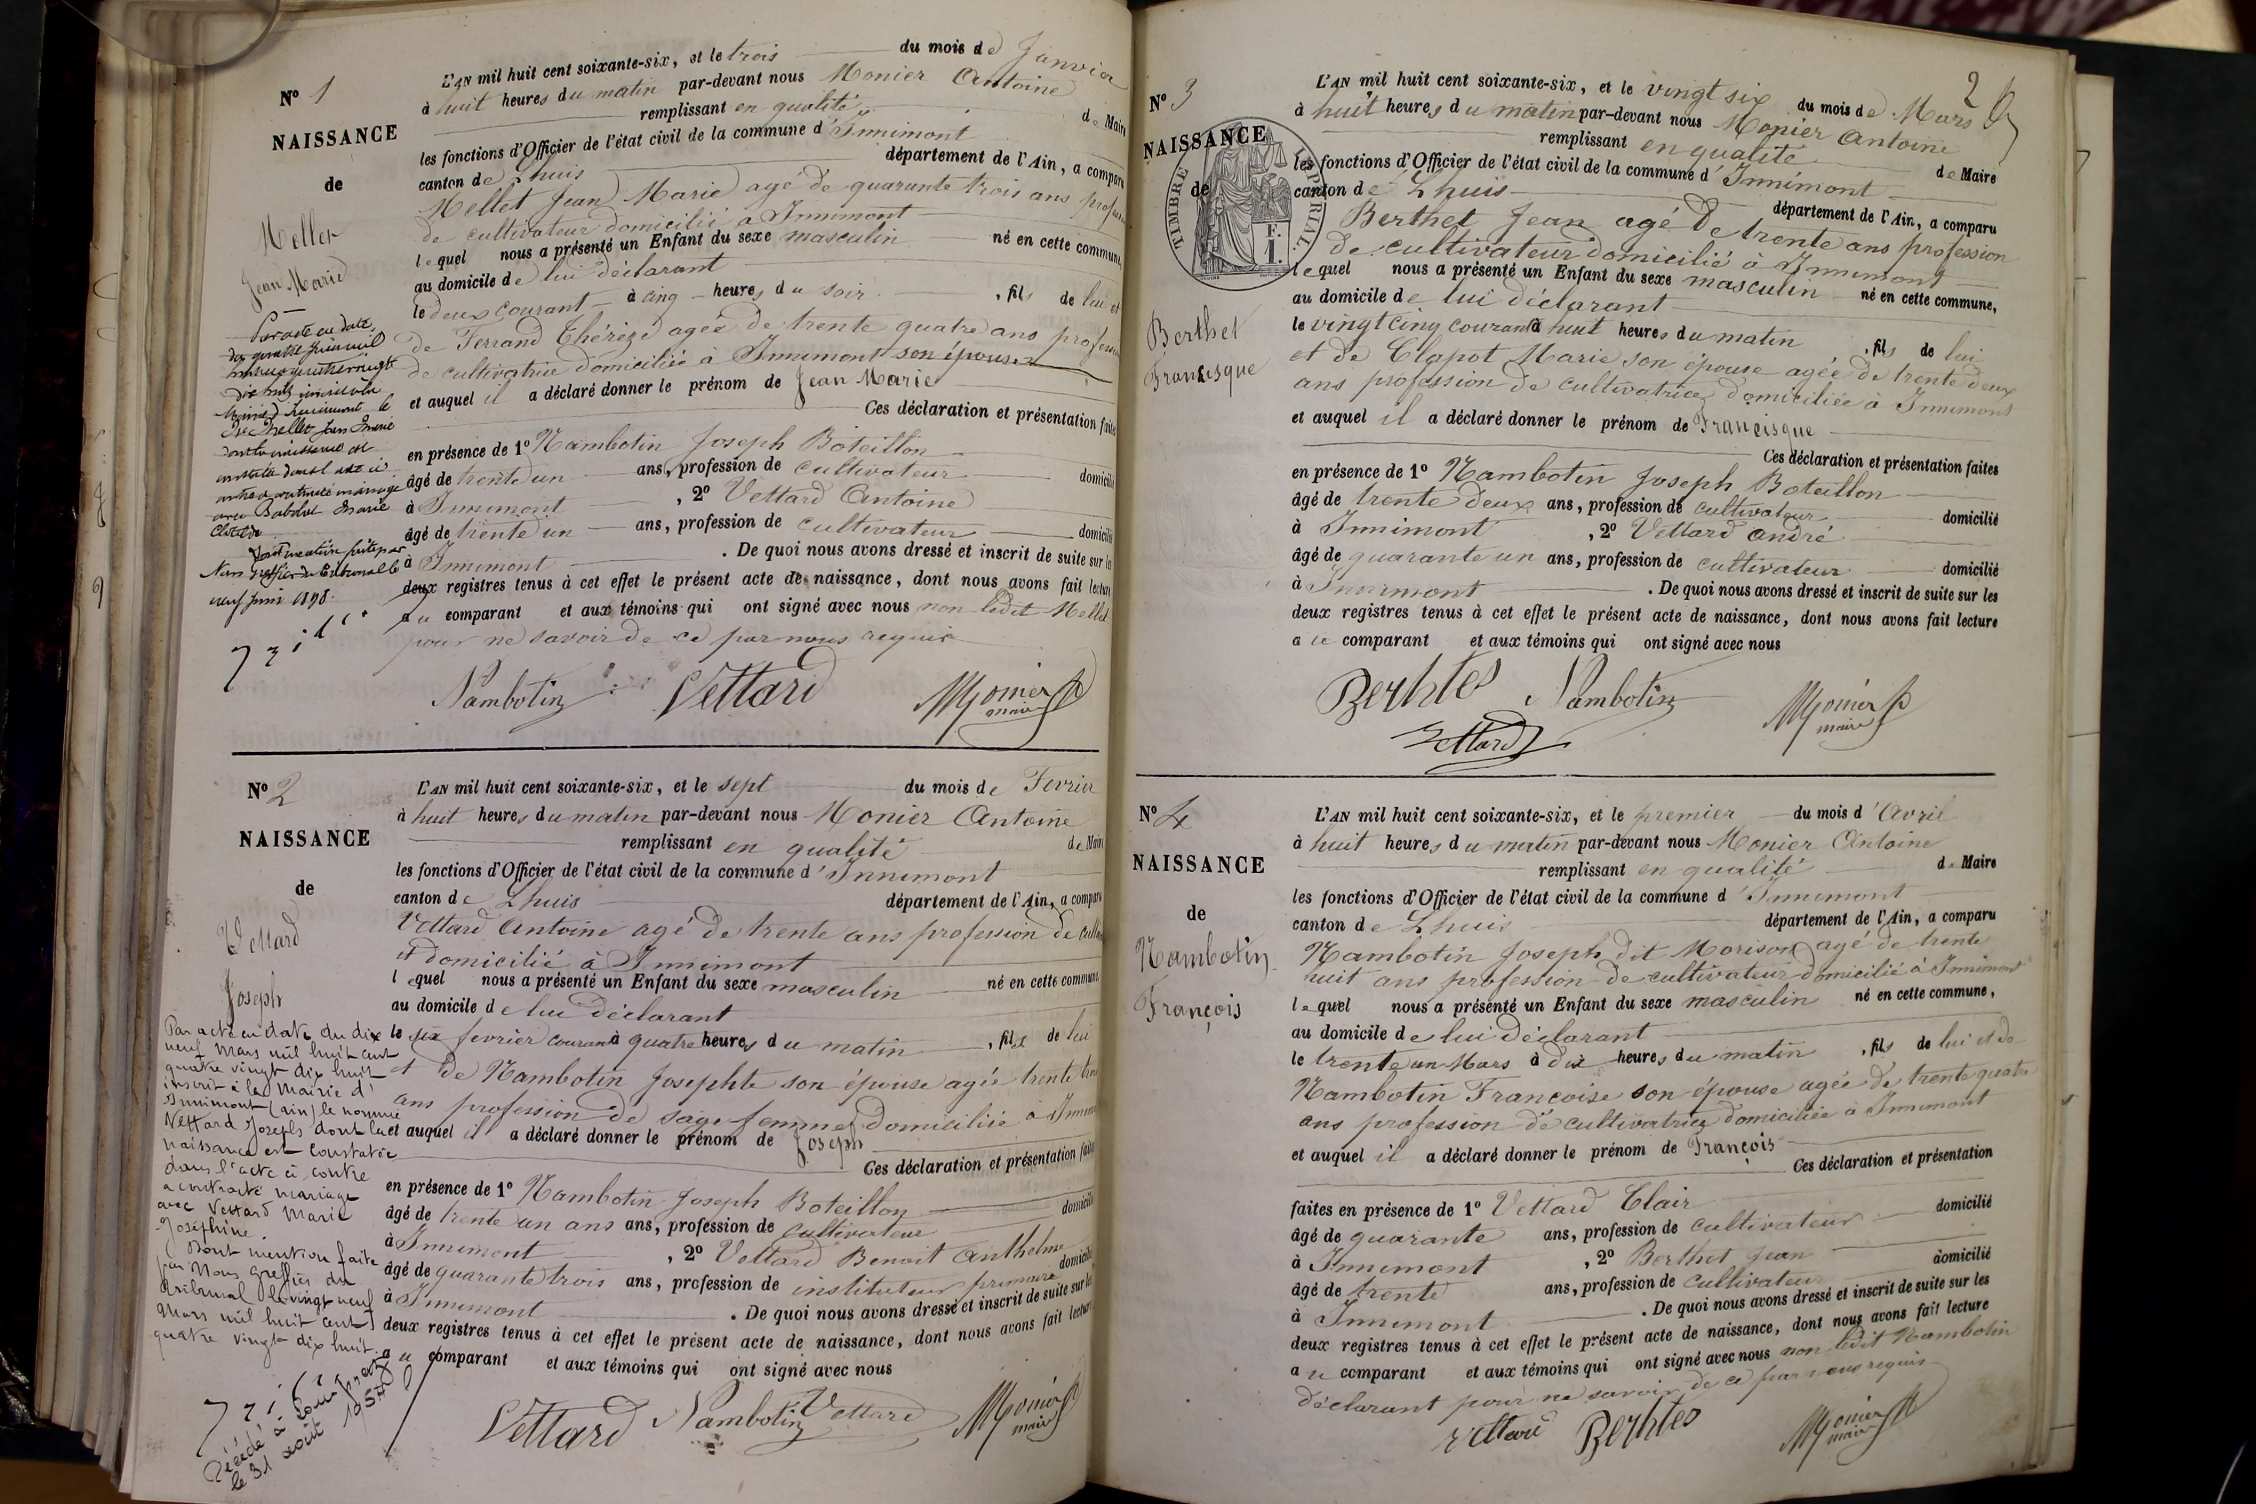 N° 1
NAISSANCE
de
Mellet
Jean Marie
L'AN mil huit cent soixante-six, et le trois du mois de Janvier
à huit heures du matin par-devant nous Monier Antoine
remplissant en qualité de Maire
les fonctions d'Officier de l'état civil de la commune d'Innimont
canton de Lhuis département de l'Ain, a comparu
Mellet Jean Marie agé de quarante trois ans
de cultivateur domicilié à Innimont
lequel nous a présenté un Enfant du sexe masculin né en cette commune,
au domicile de lui déclarant
le deux courant à cinq heures du soir, fils de lui et
de Ferrand Thérèze agée de trente quatre ans
de cultivatrice domiciliée à Innimont son épouse
et auquel il a déclaré donner le prénom de Jean Marie
Ces déclaration et présentation faites
en présence de 1° Nambotin Joseph Boteillon
âgé de trente un ans, profession de cultivateur domicilié
à Innimont, 2° Vettard Antoine
âgé de trente un ans, profession de cultivateur domicilié
à Innimont. De quoi nous avons dressé et inscrit de suite sur les
deux registres tenus à cet effet le présent acte de naissance, dont nous avons fait lecture
au comparant et aux témoins qui ont signé avec nous non ledit Mellet
pour ne savoir de ce par nous requis
Nambotin Vettard Monier
maire
Par acte en date
du quatre
Mairie d'Innimont le
Mellet Jean Marie
dont la naissance est
constatée dans l'acte ci
contre a contracté mariage
avec Marie
Clotilde
Dont mention faite par
Nous Greffier du Tribunal le
neuf Juin 1898.
N° 2
NAISSANCE
de
Vettard
Joseph
L'AN mil huit cent soixante-six, et le sept du mois de Fevrier
à huit heures du matin par-devant nous Monier Antoine
remplissant en qualité de Maire
les fonctions d'Officier de l'état civil de la commune d'Innimont
canton de Lhuis département de l'Ain, a comparu
Vettard Antoine agé de trente ans profession de
et domicilié à Innimont
lequel nous a présenté un Enfant du sexe masculin né en cette commune
au domicile de lui déclarant
le six fevrier courant à quatre heures du matin, fils de lui
et de Nambotin Josephte son épouse agée trente
ans profession de sage femme domiciliée à
et auquel il a déclaré donner le prénom de Joseph
Ces déclaration et présentation faites
en présence de 1° Nambotin Joseph Boteillon
âgé de trente un ans ans, profession de cultivateur domicilié
à Innimont, 2° Vettard Benoit Anthelme
âgé de quarante trois ans, profession de instituteur primaire domicilié
à Innimont. De quoi nous avons dressé et inscrit de suite sur les
deux registres tenus à cet effet le présent acte de naissance, dont nous avons fait lecture
au comparant et aux témoins qui ont signé avec nous
Vettard Nambotin Vettard Monier
maire
Par acte en date du dix
neuf Mars mil huit cent
quatre vingt dix huit
inscrit à la Mairie d'
Innimont (ain) le nommé
Vettard Joseph dont la
naissance est constatée
dans l'acte ci contre
a contracté mariage
avec Vettard Marie
Joséphine.
Dont mention faite
par Nous greffier du
Tribunal le vingt neuf
Mars mil huit cent
quatre vingt dix huit.
Décédé à
le 31 août
2
N° 3
NAISSANCE
de
TIMBRE IMPÉRIAL
1 F.
Berthet
Francisque
L'AN mil huit cent soixante-six, et le vingt six du mois de Mars
à huit heures du matin par-devant nous Monier Antoine
remplissant en qualité de Maire
les fonctions d'Officier de l'état civil de la commune d'Innimont
canton de Lhuis département de l'Ain, a comparu
Berthet Jean agé de trente ans profession
de cultivateur domicilié à Innimont
lequel nous a présenté un Enfant du sexe masculin né en cette commune,
au domicile de lui déclarant
le vingt cinq courant à huit heures du matin, fils de lui
et de Clapot Marie son épouse agée de trente deux
ans profession de cultivatrice domiciliée à Innimont
et auquel il a déclaré donner le prénom de Francisque
Ces déclaration et présentation faites
en présence de 1° Nambotin Joseph Boteillon
âgé de trente deux ans, profession de cultivateur domicilié
à Innimont, 2° Vettard André
âgé de quarante un ans, profession de cultivateur domicilié
à Innimont. De quoi nous avons dressé et inscrit de suite sur les
deux registres tenus à cet effet le présent acte de naissance, dont nous avons fait lecture
au comparant et aux témoins qui ont signé avec nous
Berhtet Nambotin Monier
Vettard maire
N° 4
NAISSANCE
de
Nambotin
François
L'AN mil huit cent soixante-six, et le premier du mois d'Avril
à huit heures du matin par-devant nous Monier Antoine
remplissant en qualité de Maire
les fonctions d'Officier de l'état civil de la commune d'Innimont
canton de Lhuis département de l'Ain, a comparu
Nambotin Joseph dit Morison agé de trente
huit ans profession de cultivateur domicilié à Innimont
lequel nous a présenté un Enfant du sexe masculin né en cette commune,
au domicile de lui déclarant
le trente un Mars à dix heures du matin, fils de lui et de
Nambotin Françoise son épouse agée de trente quatre
ans profession de cultivatrice domiciliée à Innimont
et auquel il a déclaré donner le prénom de François
Ces déclaration et présentation
faites en présence de 1° Vettard Clair domicilié
âgé de quarante ans, profession de cultivateur
à Innimont, 2° Berthet Jean domicilié
âgé de trente ans, profession de cultivateur
à Innimont. De quoi nous avons dressé et inscrit de suite sur les
deux registres tenus à cet effet le présent acte de naissance, dont nous avons fait lecture
au comparant et aux témoins qui ont signé avec nous non ledit Nambotin
déclarant pour ne savoir de ce par nous requis
Vettard Berhtet Monier
maire